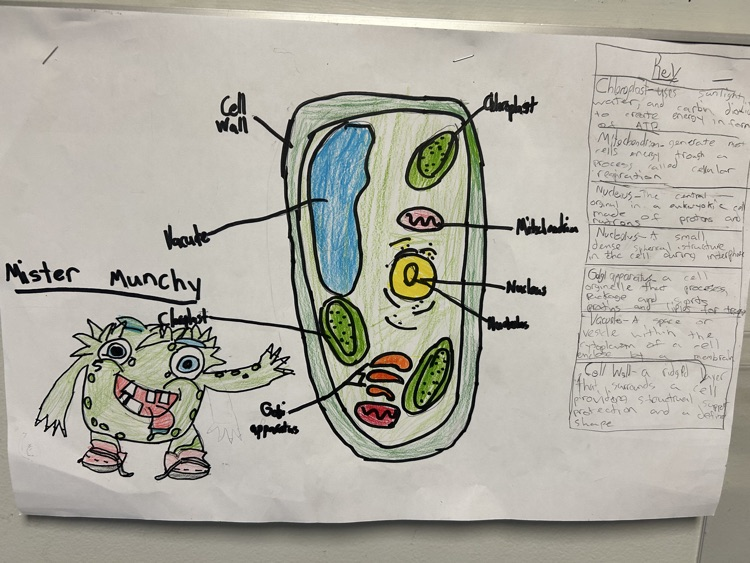 Cell
Wall
Chloroplast
Vacute
Mitochondion
Mister Munchy
Nucleus
Choplast
Nucleolus
Golgi
apparatus
Key
Chloroplast-uses sunlight,
water, and carbon
to create energy in form
of ATP
Mitochondrion-generate
cells energy trough a
process called cellular
respiration
Nucleus-The central
organal in a eukaryotic cell
made of protons and
nutrons
Nucleolus-A small
dense spherical structure
in the cell during interphase
Golgi apparatus-a cell
orginelle that processes,
Package and sports
protins and lipids for
Vacuole-A space or
vesicle within the
cytoplasm of a cell
enclose by a membrain
Cell Wall-a ridgid layer
that surrounds a cell
providing structural support
protection and a
shape